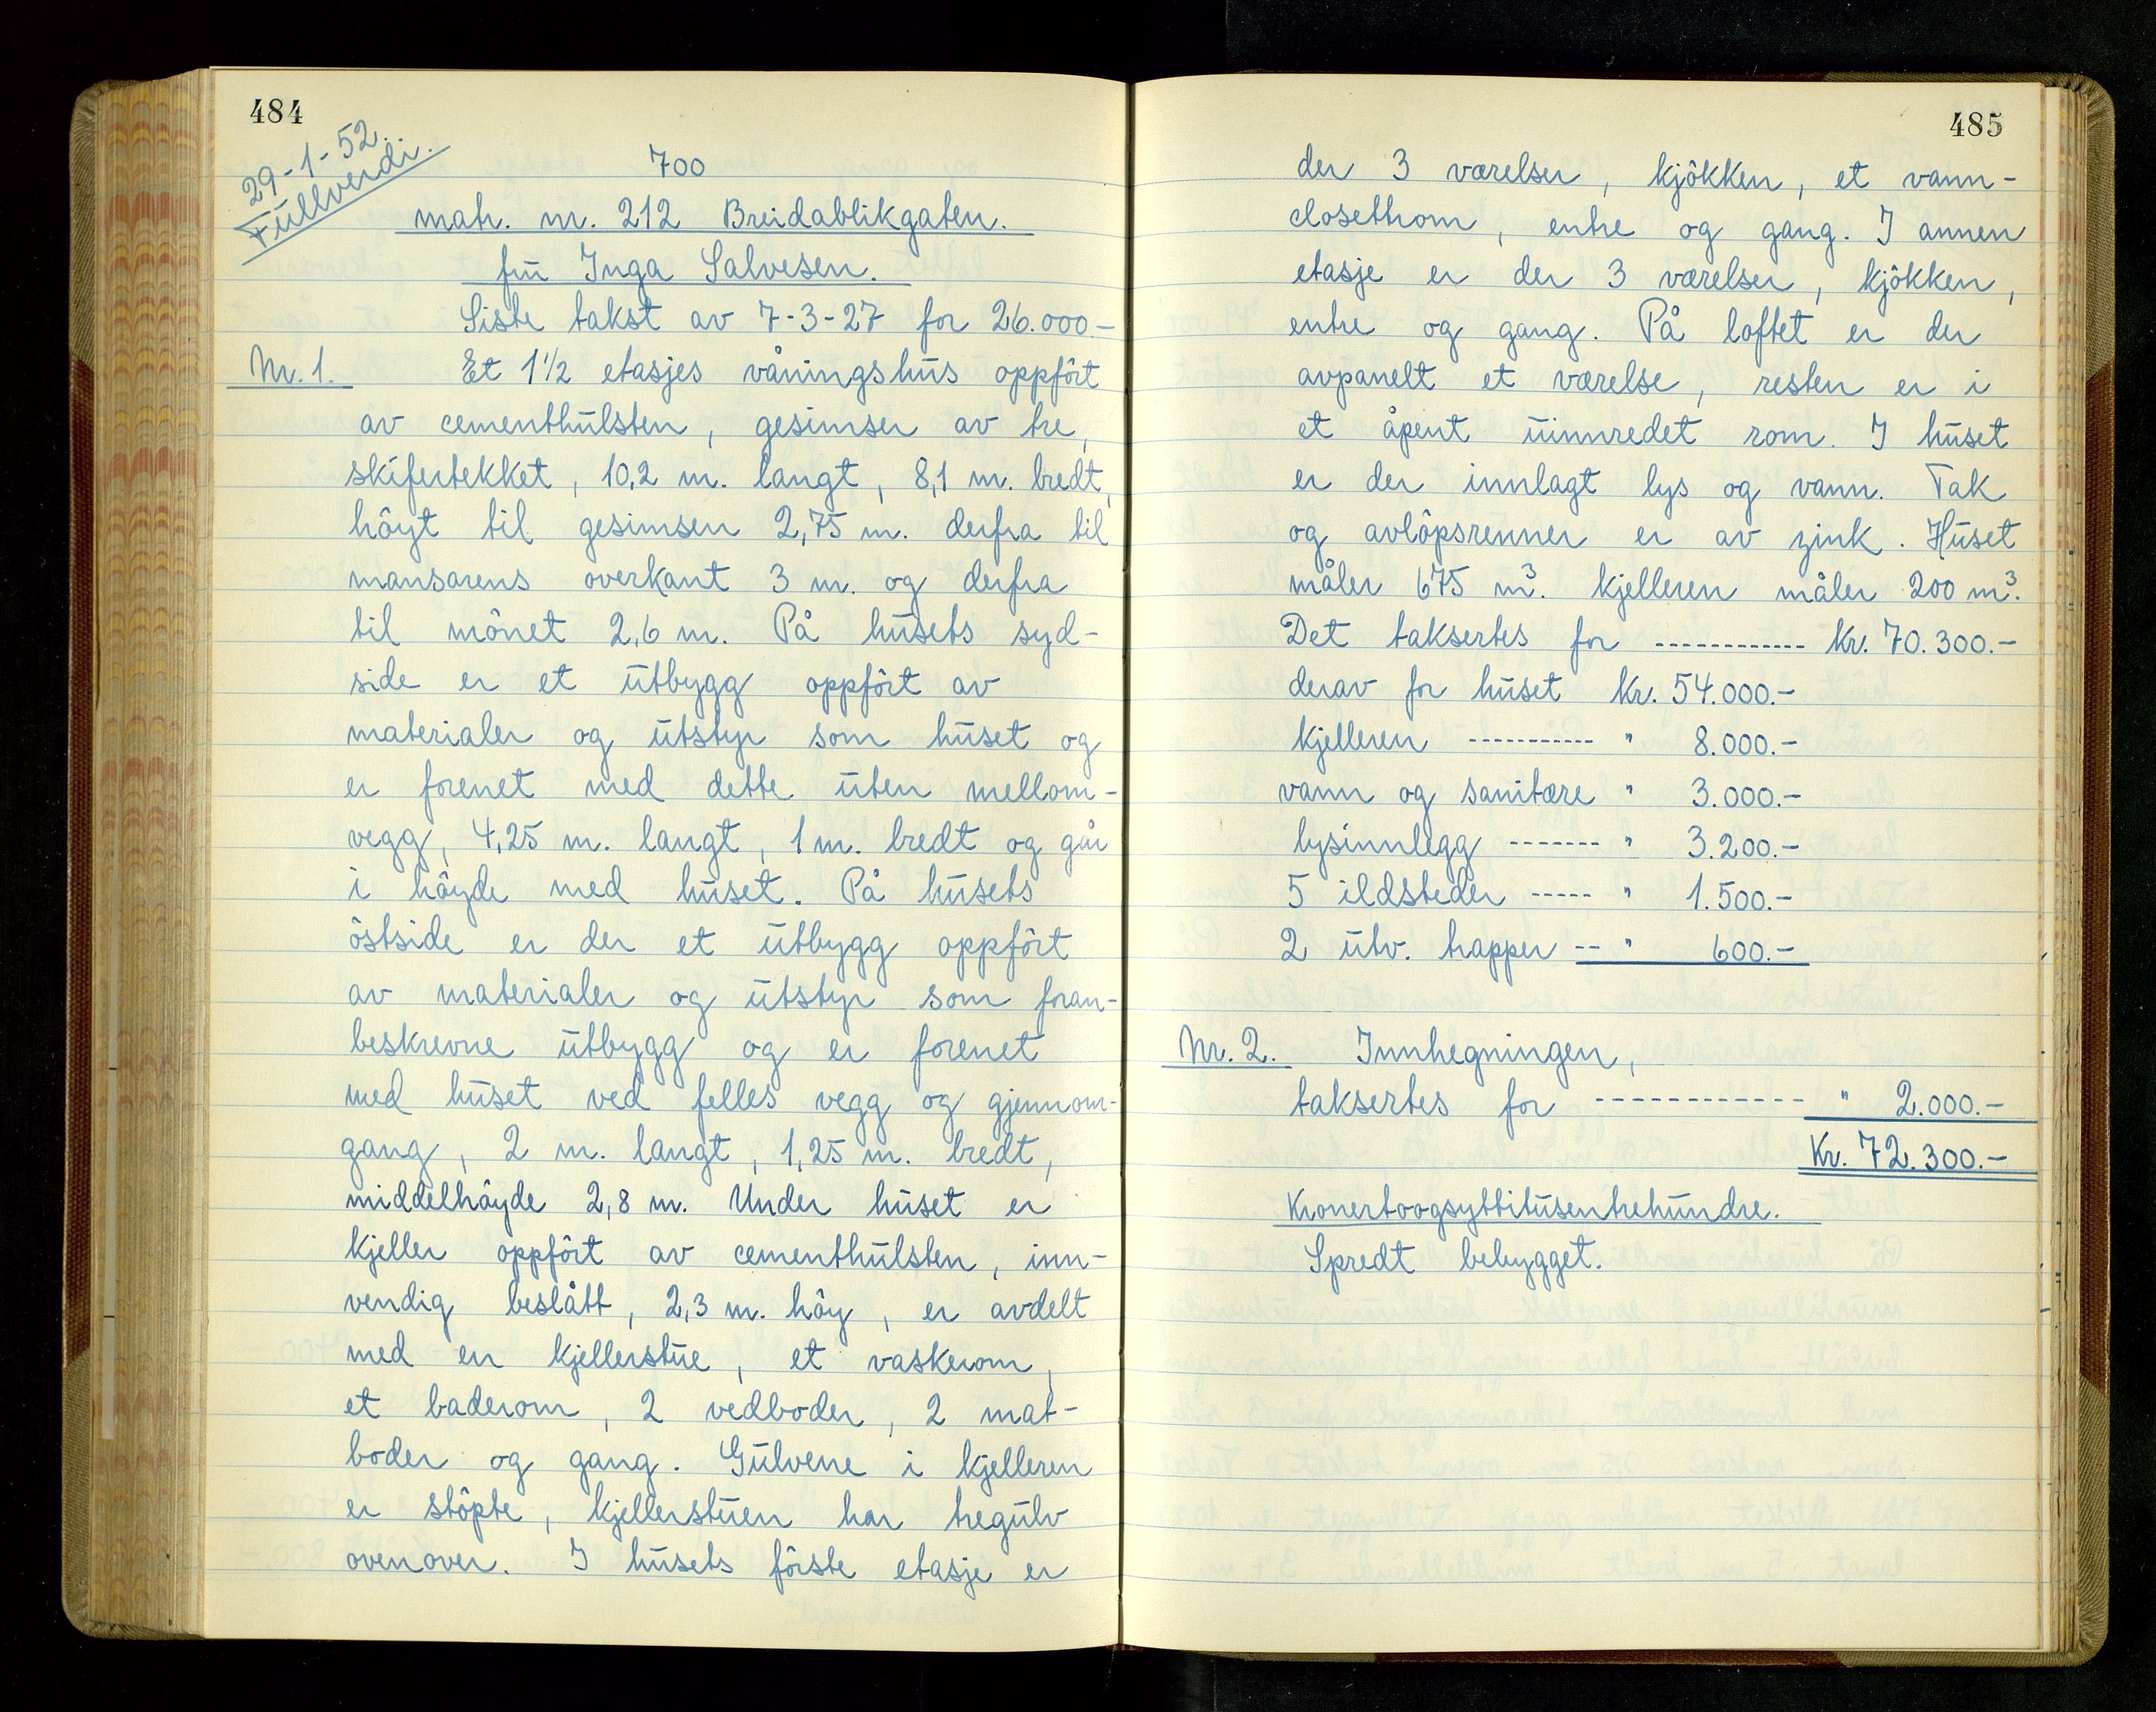 484
29-1-52.
Fullverdi.
700
matr. nr. 212 Breidablikgaten.
fru Inga Salvesen.
Siste takst av 7-3-27 for 26.000.-
Nr. 1. Et 1½ etasjes våningshus oppfört
av cementhulsten, gesimser av tre,
skifertekket, 10,2 m. langt, 8,1 m. bredt,
höyt til gesimsen 2,75 m. derfra til
mansarens overkant 3 m. og derfra
til mönet 2,6 m. På husets syd-
side er et utbygg oppfört av
materialer og utstyr som huset og
er forenet med dette uten mellom-
vegg, 4,25 m. langt, 1 m. bredt og går
i höyde med huset. På husets
östside er der et utbygg oppfört
av materialer og utstyr som foran-
beskrevne utbygg og er forenet
med huset ved felles vegg og gjennom-
gang, 2 m. langt, 1,25 m. bredt,
middelhöyde 2,8 m. Under huset er
kjeller oppfört av cementhulsten, inn-
vendig beslått, 2,3 m. höy, er avdelt
med en kjellerstue, et vaskerom,
et baderom, 2 vedboder, 2 mat-
boder og gang. Gulvene i kjelleren
er stöpte, kjellerstuen har tregulv
ovenover. I husets förste etasje er
485
der 3 værelser, kjökken, et vann-
closettrom, entre og gang. I annen
etasje er der 3 værelser, kjökken,
entre og gang. På loftet er der
avpanelt et værelse, resten er i
et åpent uinnredet rom. I huset
er der innlagt lys og vann. Tak
og avlöpsrenner er av zink. Huset
måler 675 m³. kjelleren måler 200 m³.
Det taksertes for ------------ kr. 70.300.-
derav for huset kr. 54.000.-
kjelleren ----------- " 8.000.-
vann og sanitære " 3.000.-
lysinnlegg ------- " 3.200.-
5 ildsteder ----- " 1.500.-
2 utv. trapper -- " 600.-
Nr. 2. Innhegningen,
taksertes for ------------ " 2.000.-
Kr. 72.300.-
Kronertoogsyttitusentrehundre.
Spredt bebygget.